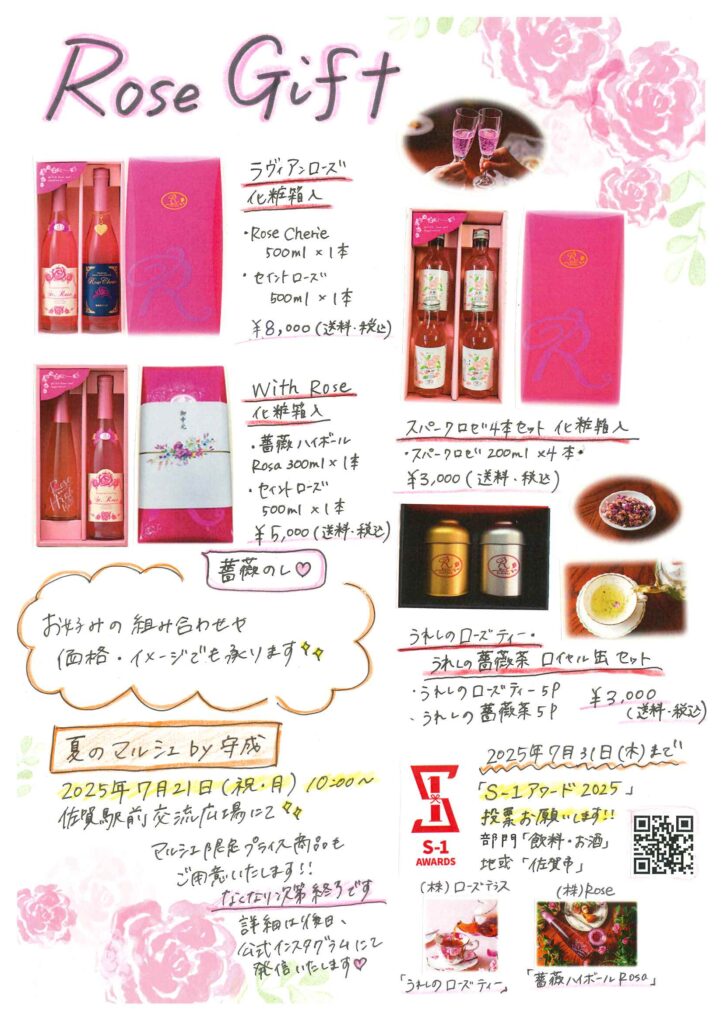 Rose Gift
ラヴィアンローズ
化粧箱入
・Rose Cherie
500ml × 1本
・セイントローズ
500ml × 1本
¥8,000(送料・税込)
With Rose
化粧箱入
・薔薇ハイボール
Rosa 300ml × 1本
・セイントローズ
500ml × 1本
¥5,000(送料・税込)
御中元
薔薇のし♡
スパークロゼ4本セット 化粧箱入
・スパークロゼ 200ml ×4本・
¥3,000(送料・税込)
うれしのローズティー・
うれしの薔薇茶 ロイヤル缶セット
・うれしのローズティー5P
・うれしの薔薇茶5P
¥3,000
(送料・税込)
お好みの組み合わせや
価格・イメージでも承ります
夏のマルシェ by 守成
2025年7月21日(祝・月) 10:00〜
佐賀駅前交流広場にて
マルシェ限定プライス商品も
ご用意いたします!!
なくなり次第終了です
詳細は後日、
公式インスタグラムにて
発信いたします♡
2025年7月31日(木)まで
「S-1アワード2025」
投票お願いします!!
部門「飲料・お酒」
地域「佐賀市」
S-1
AWARDS
(株)ローズテラス
(株)Rose
「うれしのローズティー」
「薔薇ハイボールRosa」